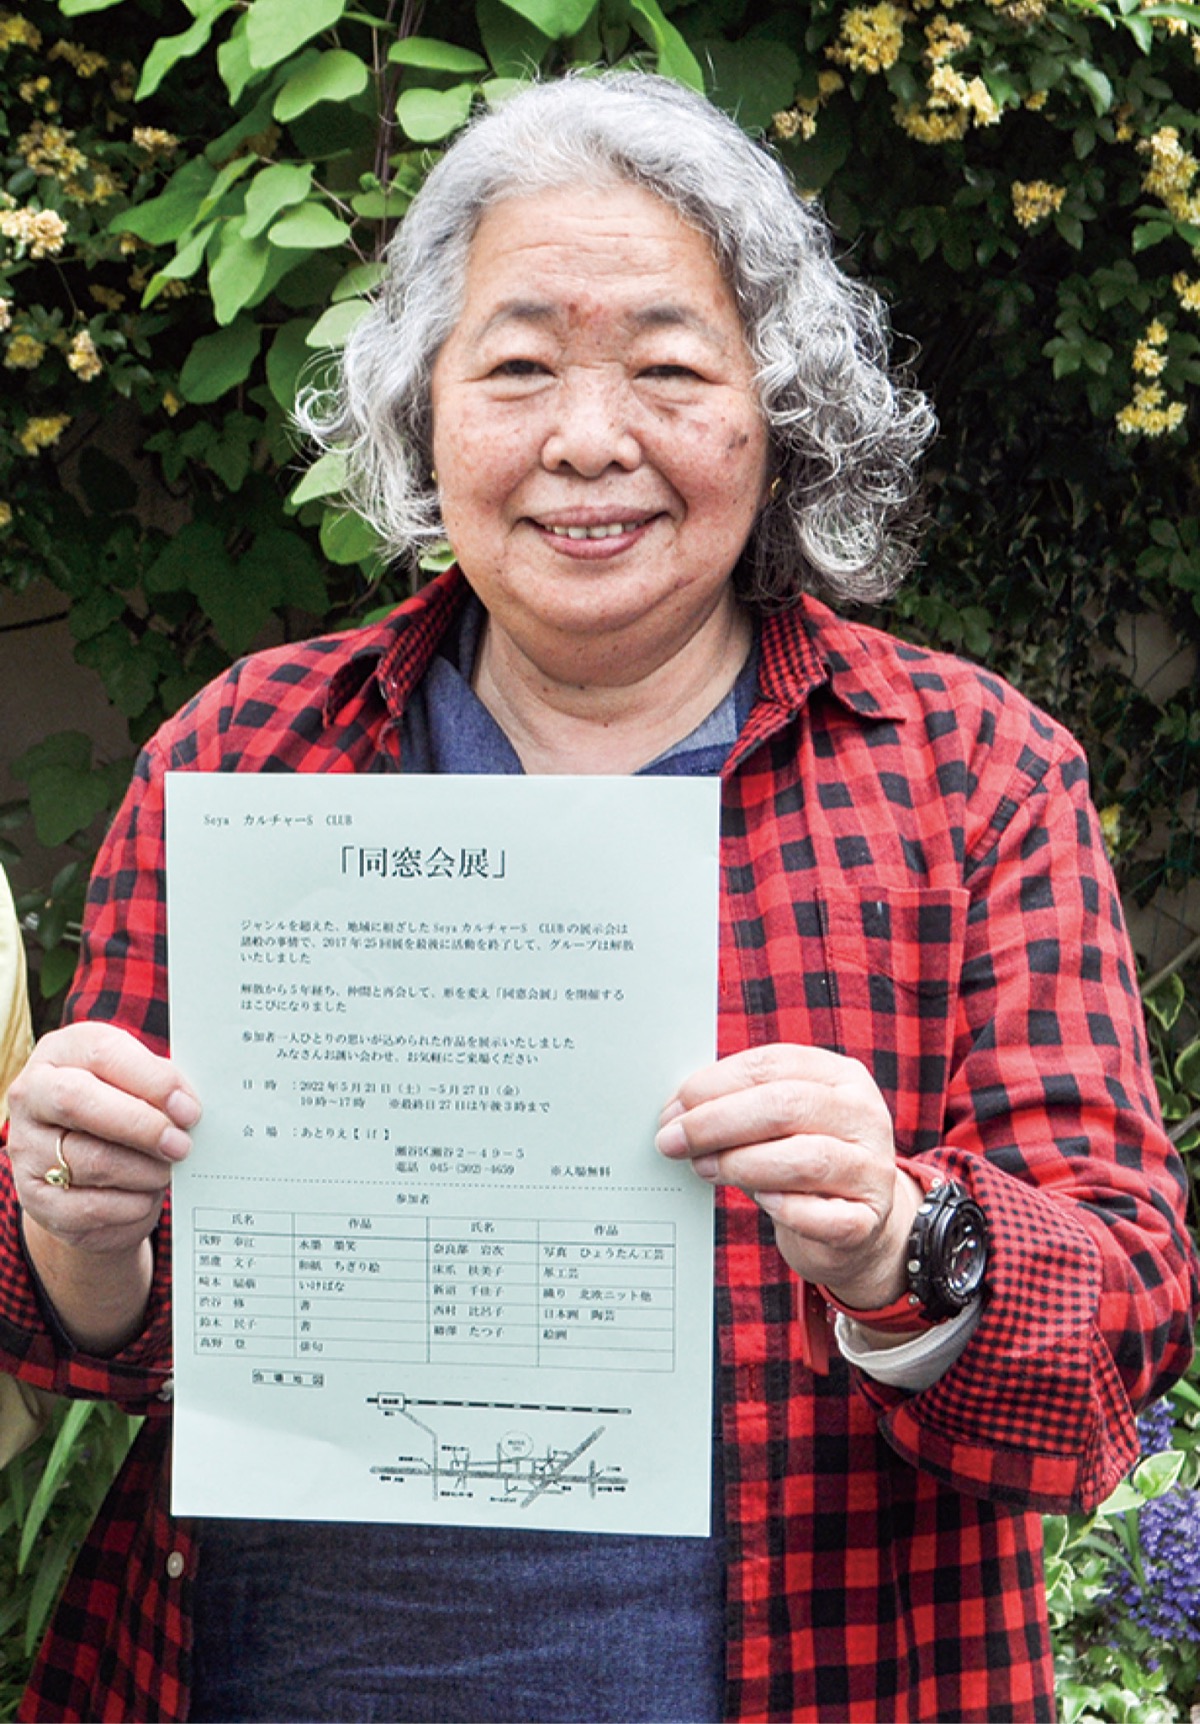 Seya カルチャーS CLUB
「同窓会展」
ジャンルを超えた、地域に根ざしたSeyaカルチャーS CLUBの展示会は
諸般の事情で、2017年25回展を最後に活動を終了して、グループは解散
いたしました
解散から5年経ち、仲間と再会して、形を変え「同窓会展」を開催する
はこびになりました
参加者一人ひとりの思いが込められた作品を展示いたしました
みなさんお誘い合わせ、お気軽にご来場ください
日 時 ：2022年5月21日（土）～5月27日（金）
10時～17時 ※最終日27日は午後3時まで
会 場 ：あとりえ【 if 】
瀬谷区瀬谷2－49－5
電話 045-(302)-4659 ※入場無料
参加者
氏名 作品 氏名 作品
浅野 幸江 水墨 墨笑 奈良部 岩次 写真 ひょうたん工芸
黒瀧 文子 和紙 ちぎり絵 床爪 扶美子 革工芸
崎本 いけばな 新沼 千佳子 織り 北欧ニット他
渋谷 修 書 西村 比呂子 日本画 陶芸
鈴木 民子 書 たつ子 絵画
高野 登 俳句
会場地図